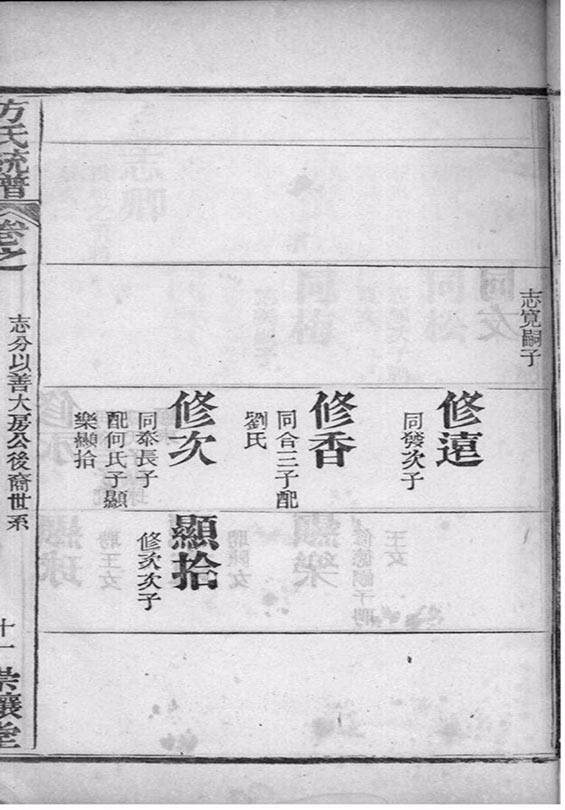 志寬嗣子
修遠
同發次子
修香
同合三子配
劉氏
修次
同泰長子
配何氏子顯
樂顯拾
顯拾
修次次子
方氏統譜
卷之
志分以善大房公後裔世系
十一
崇讓堂